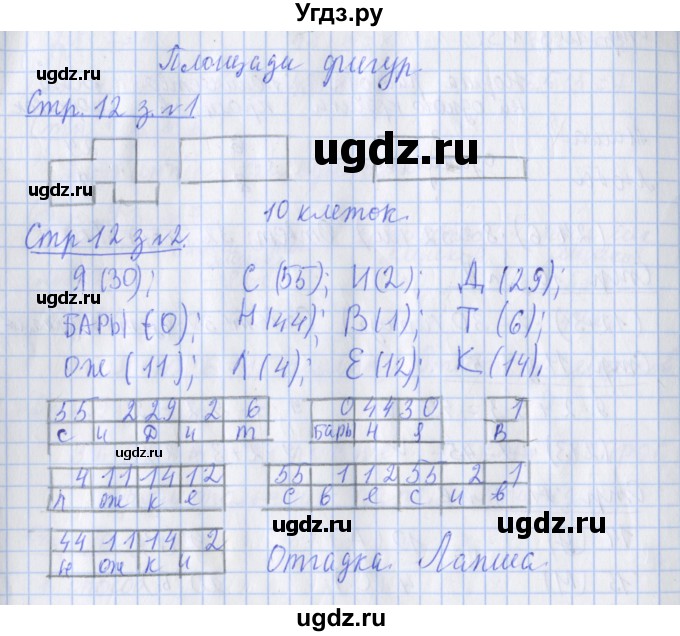 Угдз.ру
Площади фигур.
ugdz.ru
Стр. 12 з. №1
ugdz.ru
ugdz.ru
ugdz.ru
10 клеток.
Стр 12 з №2.
Я (30); С (55); И(2); Д (29);
ugdz.ru
БАРЫ (0); Н(44); В(1); Т (6);
ОЖ (11); Л(4); Е(12); К(14).
55 2 29 2 6 0 44 30 1
с и д и т бары н я в
ugdz.ru
4 11 14 12 55 1 12 55 2 1
л ож к е с в е с и в
ugdz.ru
ugdz.ru
44 11 14 2
н ож к и
Отгадка. Лапша.
ugdz.ru